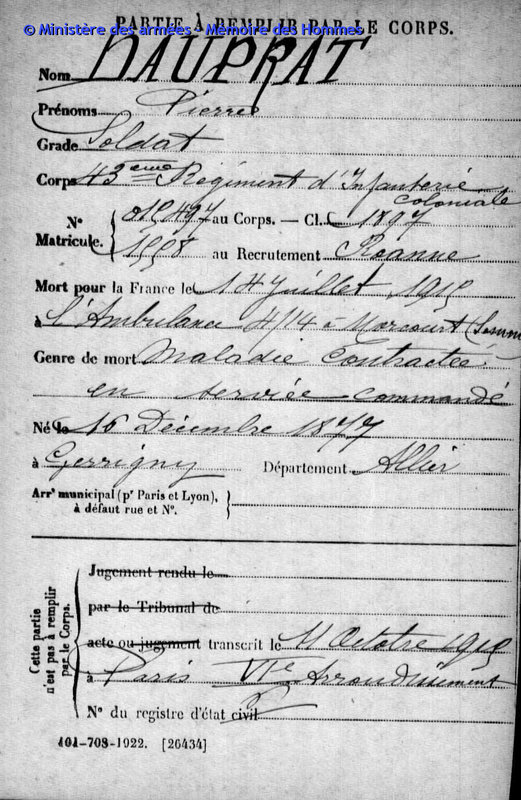 PARTIE À REMPLIR PAR LE CORPS.
© Ministère des armées - Mémoire des Hommes
Nom DAUPRAT
Prénoms Pierre
Grade Soldat
Corps 43ème Régiment d'Infanterie
coloniale
N° Matricule. 497 au Corps. — Cl. 1897
1558 au Recrutement Roanne
Mort pour la France le 14 Juillet 1915
à l'Ambulance 4/14 à Morcourt (Somme
Genre de mort Maladie Contractée
en service commandé
Né le 16 Décembre 1877
à Département Allier
Arrt municipal (pr Paris et Lyon),
à défaut rue et N°.
Cette partie n'est pas à remplir par le Corps.
Jugement rendu le
par le Tribunal de
acte ou jugement transcrit le 11 Octobre 1915
à Paris VIe Arrondissement
N° du registre d'état civil
101-708-1922. [26434]